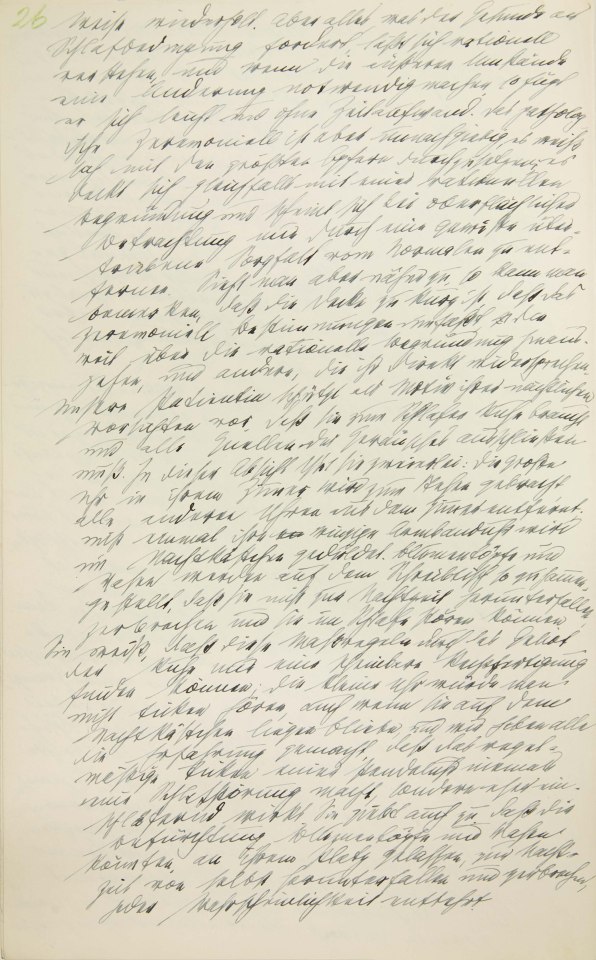 26
Weise wiederholt. Aber alles, was der Gesunde als
Schlafbedingung fordert, läßt sich rationell
verstehen, und wenn die äußeren Umstände
eine Änderung notwendig machen, so fügt
er sich leicht und ohne Zeitaufwand. Das patholog
ische Zeremoniell ist aber unnachgiebig, es weiß
sich mit den größten Opfern durchzusetzen, es
deckt sich gleichfalls mit einer rationellen
Begründung und scheint sich bei oberflächlicher
Betrachtung nur durch eine gewisse über-
triebene Sorgfalt vom Normalen zu ent-
fernen. Sieht man aber näher zu, so kann man
bemerken, daß die Decke zu kurz ist, daß das
Zeremoniell Bestimmungen umfaßt, die
weit über die rationelle Begründung hinaus-
gehen, und andere, die ihr direkt widersprechen.
Unsere Patientin schützt als Motiv ihrer nächtlichen
Vorsichten vor, daß sie zum Schlafen Ruhe braucht
und alle Quellen des Geräusches ausschließen
muß. In dieser Absicht tut sie zweierlei: die große
Uhr in ihrem Zimmer wird zum Stehen gebracht
alle anderen Uhren aus dem Zimmer entfernt.
nicht einmal ihre winzige Armbanduhr wird
im Nachtkästchen geduldet. Blumentöpfe und
Vasen werden auf dem Schreibtisch so zusammen-
gestellt, daß sie nicht zur Nachtzeit herunterfallen
zerbrechen und sie im Schlafe stören können
Sie weiß, daß diese Maßregeln durch das Gebot
der Ruhe nur eine scheinbare Rechtfertigung
finden können; die kleine Uhr würde man
nicht ticken hören, auch wenn sie auf dem
Nachtkästchen liegen bliebe, und wir haben alle
die Erfahrung gemacht, daß das regel-
mäßige Ticken einer Pendeluhr niemals
eine Schlafstörung macht, sondern eher ein-
schläfernd wirkt. Sie gibt auch zu, daß die
Befürchtung, Blumentöpfe und Vasen
könnten, an ihrem Platz gelassen, zur Nacht-
zeit von selbst herunterfallen und zerbrechen,
jeder Wahrscheinlichkeit entbehrt.